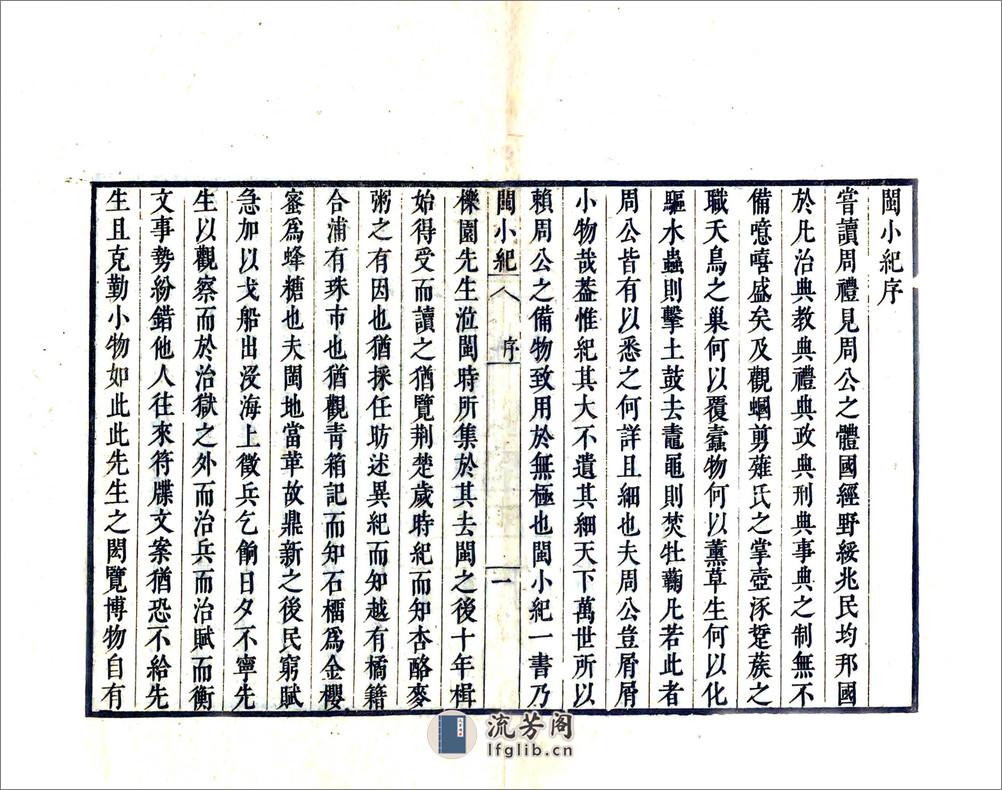 閩小紀序
嘗讀周禮見周公之體國經野綏兆民均邦國
於凡治典教典禮典政典刑典事典之制無不
備噫嘻盛矣及觀蟈剪薙氏之掌壺涿硩蔟之
職天鳥之巢何以覆蠹物何以薰草生何以化
驅水蟲則擊土鼓去鼃黽則焚牡蘜凡若此者
周公皆有以悉之何詳且細也夫周公豈屑屑
小物哉葢惟紀其大不遺其細天下萬世所以
賴周公之備物致用於無極也閩小紀一書乃
閩小紀 序 一
櫟園先生涖閩時所集於其去閩之後十年楫
始得受而讀之猶覽荆楚歲時紀而知杏酪麥
粥之有因也猶採任昉述異紀而知越有橘籍
合浦有珠市也猶觀青箱記而知石橊爲金櫻
蜜爲蜂糖也夫閩地當革故鼎新之後民窮賦
急加以戈船出沒海上徵兵乞餉日夕不寧先
生以觀察而於治獄之外而治兵而治賦而衡
文事勢紛錯他人往來符牒文案猶恐不給先
生且克勤小物如此此先生之閎覽博物自有
流芳阁
lfglib.cn